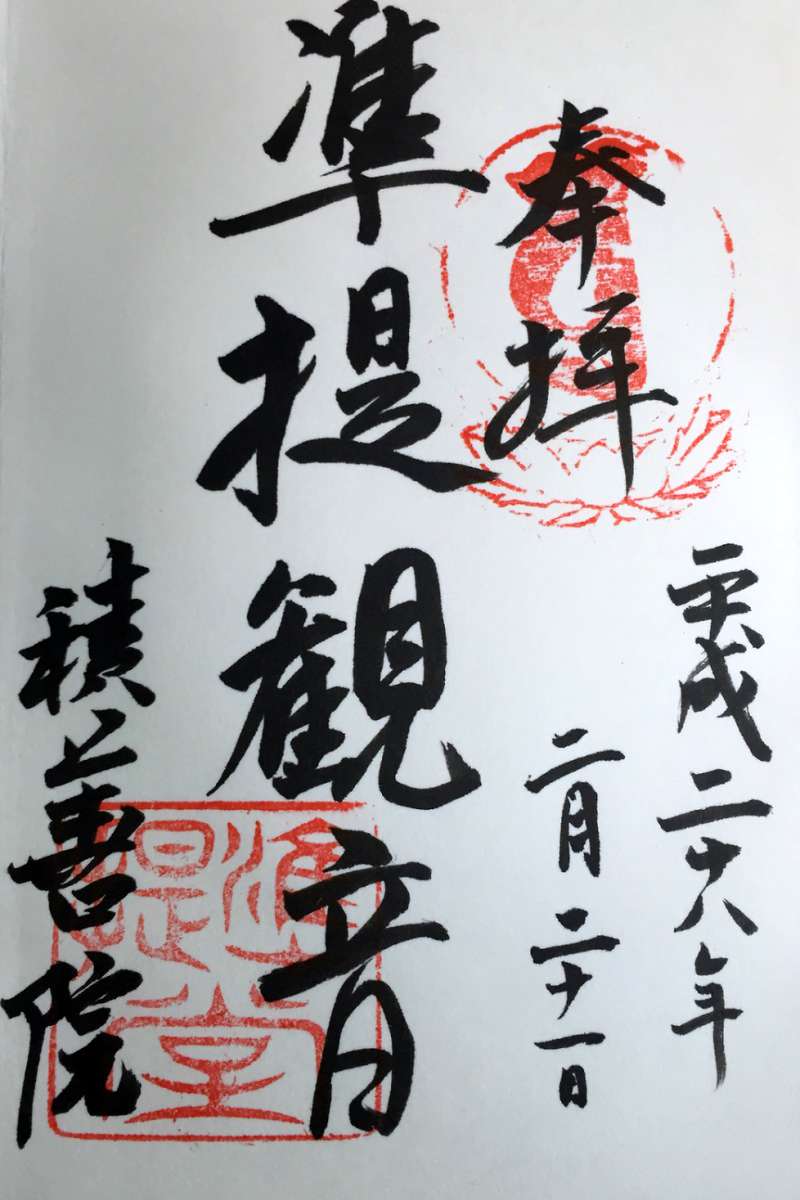 奉拝
平成二十八年
二月二十一日
準提観音
積善院
準提堂